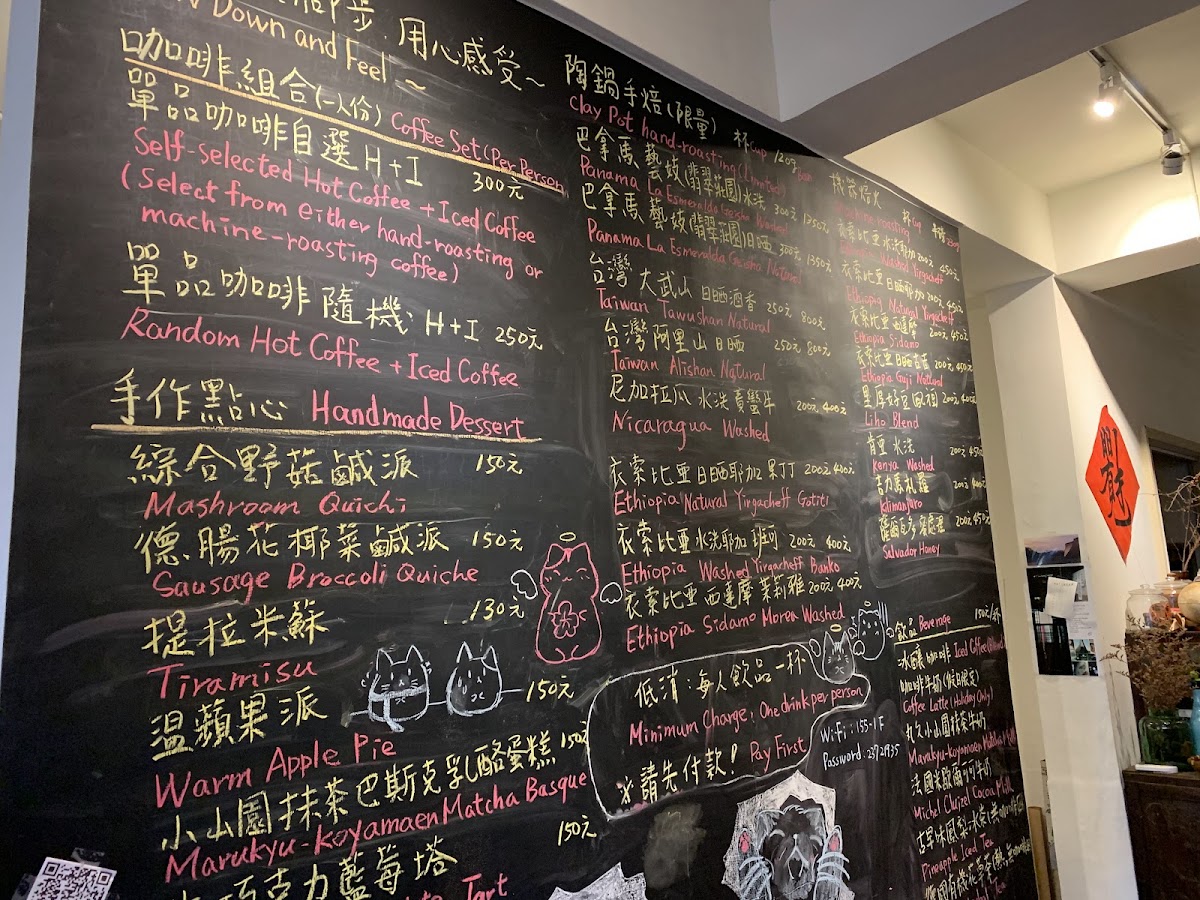 用心感受~
Down and Feel ~
咖啡組合(一人份) Coffee Set (Per Person
單品咖啡自選 H+I 300元
Self-selected Hot Coffee + Iced Coffee
(Select from either hand-roasting or
machine-roasting coffee)
單品咖啡隨機: H+I 250元
Random Hot Coffee + Iced Coffee
手作點心 Handmade Dessert
綜合野菇鹹派 150元
Mashroom Quichi
德腸花椰菜鹹派 150元
Sausage Broccoli Quiche
提拉米蘇 130元
Tiramisu
溫蘋果派 150元
Warm Apple Pie
小山園抹茶巴斯克乳酪蛋糕 150元
Marukyu-koyamaen Matcha Basque
巧克力藍莓塔 150元
Tart
陶鍋手焙(限量) 杯Cup /120g
Clay Pot hand-roasting (Limited)
巴拿馬藝妓(翡翠莊園)水洗 300元 1350元
Panama La Esmeralda Geisha Washed
巴拿馬藝妓(翡翠莊園)日晒 300元 1350元
Panama La Esmeralda Geisha Natural
台灣大武山日晒酒香 250元 800元
Taiwan Tawushan Natural
台灣阿里山日晒 250元 800元
Taiwan Alishan Natural
尼加拉瓜水洗 200元 400元
Nicaragua Washed
衣索比亞日晒耶加果丁丁 200元 400元
Ethiopia Natural Yirgacheff Gotiti
衣索比亞水洗耶加班可 200元 400元
Ethiopia Washed Yirgacheff Banko
衣索比亞西達摩茉莉雅 200元 400元
Ethiopia Sidamo Morea Washed
低消:每人飲品一杯
Minimum Charge: One drink per person
※請先付款! Pay First
Wi-Fi: 155-1F
機器焙火
衣索比亞水洗耶加 200元 450元
Washed Yirgacheff
衣索比亞日晒耶加 200元 450元
Ethiopia Natural Yirgacheff
衣索比亞西達摩 200元 450元
Ethiopia Sidamo
衣索比亞日晒古吉 200元 450元
Ethiopia Guji Natural
200元 400元
Liho Blend
肯亞水洗 200元 450元
Kenya Washed
吉力馬札羅
Kilimanjaro
200元 450元
Salvador Honey
飲品 Beverage 150元/杯
冰釀咖啡 Iced Coffee
咖啡牛奶(假日限定)
Coffee Latte (Holiday Only)
丸久小山園抹茶牛奶
Marukyu-koyamaen
法國米歇爾可可牛奶
Michel Cluizel Cocoa Milk
古早味鳳梨冰茶
Pineapple Iced Tea